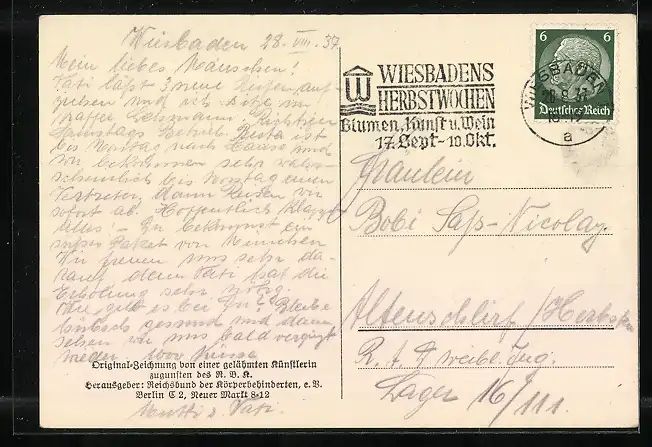 Wiesbaden 28. VIII. 37
Mein liebes Mäuschen!
Vati läßt 3 neue Reifen auf
ziehen und ich sitze im
Kaffee
Samstags Betrieb. Berta ist
bis Montag nach Hause und
wir bekommen sehr wahr-
scheinlich bis Montag einen
Vertreter, dann reisen wir
sofort ab. Hoffentlich klappt
alles. – Du bekommst ein
Paket von München
Wir freuen uns sehr da-
rauf, denn Vati hat die
Erholung sehr nötig.
Wie geht es bei Dir? Bleibe
hübsch gesund und dann
sehen wir uns bald vergnügt
wieder. 1000 Küsse
Original-Zeichnung von einer gelähmten Künstlerin
zugunsten des R. B. K.
Herausgeber: Reichsbund der Körperbehinderten, e. V.
Berlin C 2, Neuer Markt 8-12
Mutti u. Vati.
WIESBADENS
HERBSTWOCHEN
Blumen, Kunst u. Wein
17. Sept - 10. Okt.
WIESBADEN
a
6 6
Deutsches Reich
Fräulein
Bobi Saß-Nicolay.
Altenschlirf / Herbstein
R. A. D. weibl. Jug.
Lager 16/111.